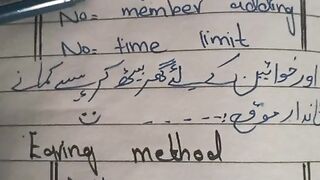 No= member adding
No= time limit
اور خواتین کے لئے گھر بیٹھ کر پیسے کمانے
موقع:-
Eaning method